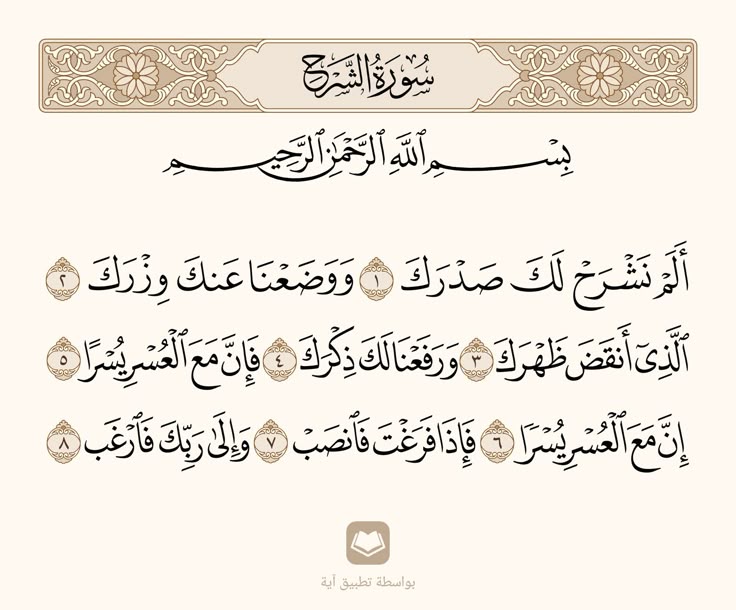 سُورَةُ الشَّرْحِ
بِسْمِ ٱللَّهِ ٱلرَّحْمَٰنِ ٱلرَّحِيمِ
أَلَمْ نَشْرَحْ لَكَ صَدْرَكَ ١ وَوَضَعْنَا عَنكَ وِزْرَكَ ٢
ٱلَّذِىٓ أَنقَضَ ظَهْرَكَ ٣ وَرَفَعْنَا لَكَ ذِكْرَكَ ٤ فَإِنَّ مَعَ ٱلْعُسْرِ يُسْرًا ٥
إِنَّ مَعَ ٱلْعُسْرِ يُسْرًا ٦ فَإِذَا فَرَغْتَ فَٱنصَبْ ٧ وَإِلَىٰ رَبِّكَ فَٱرْغَب ٨
بواسطة تطبيق آية